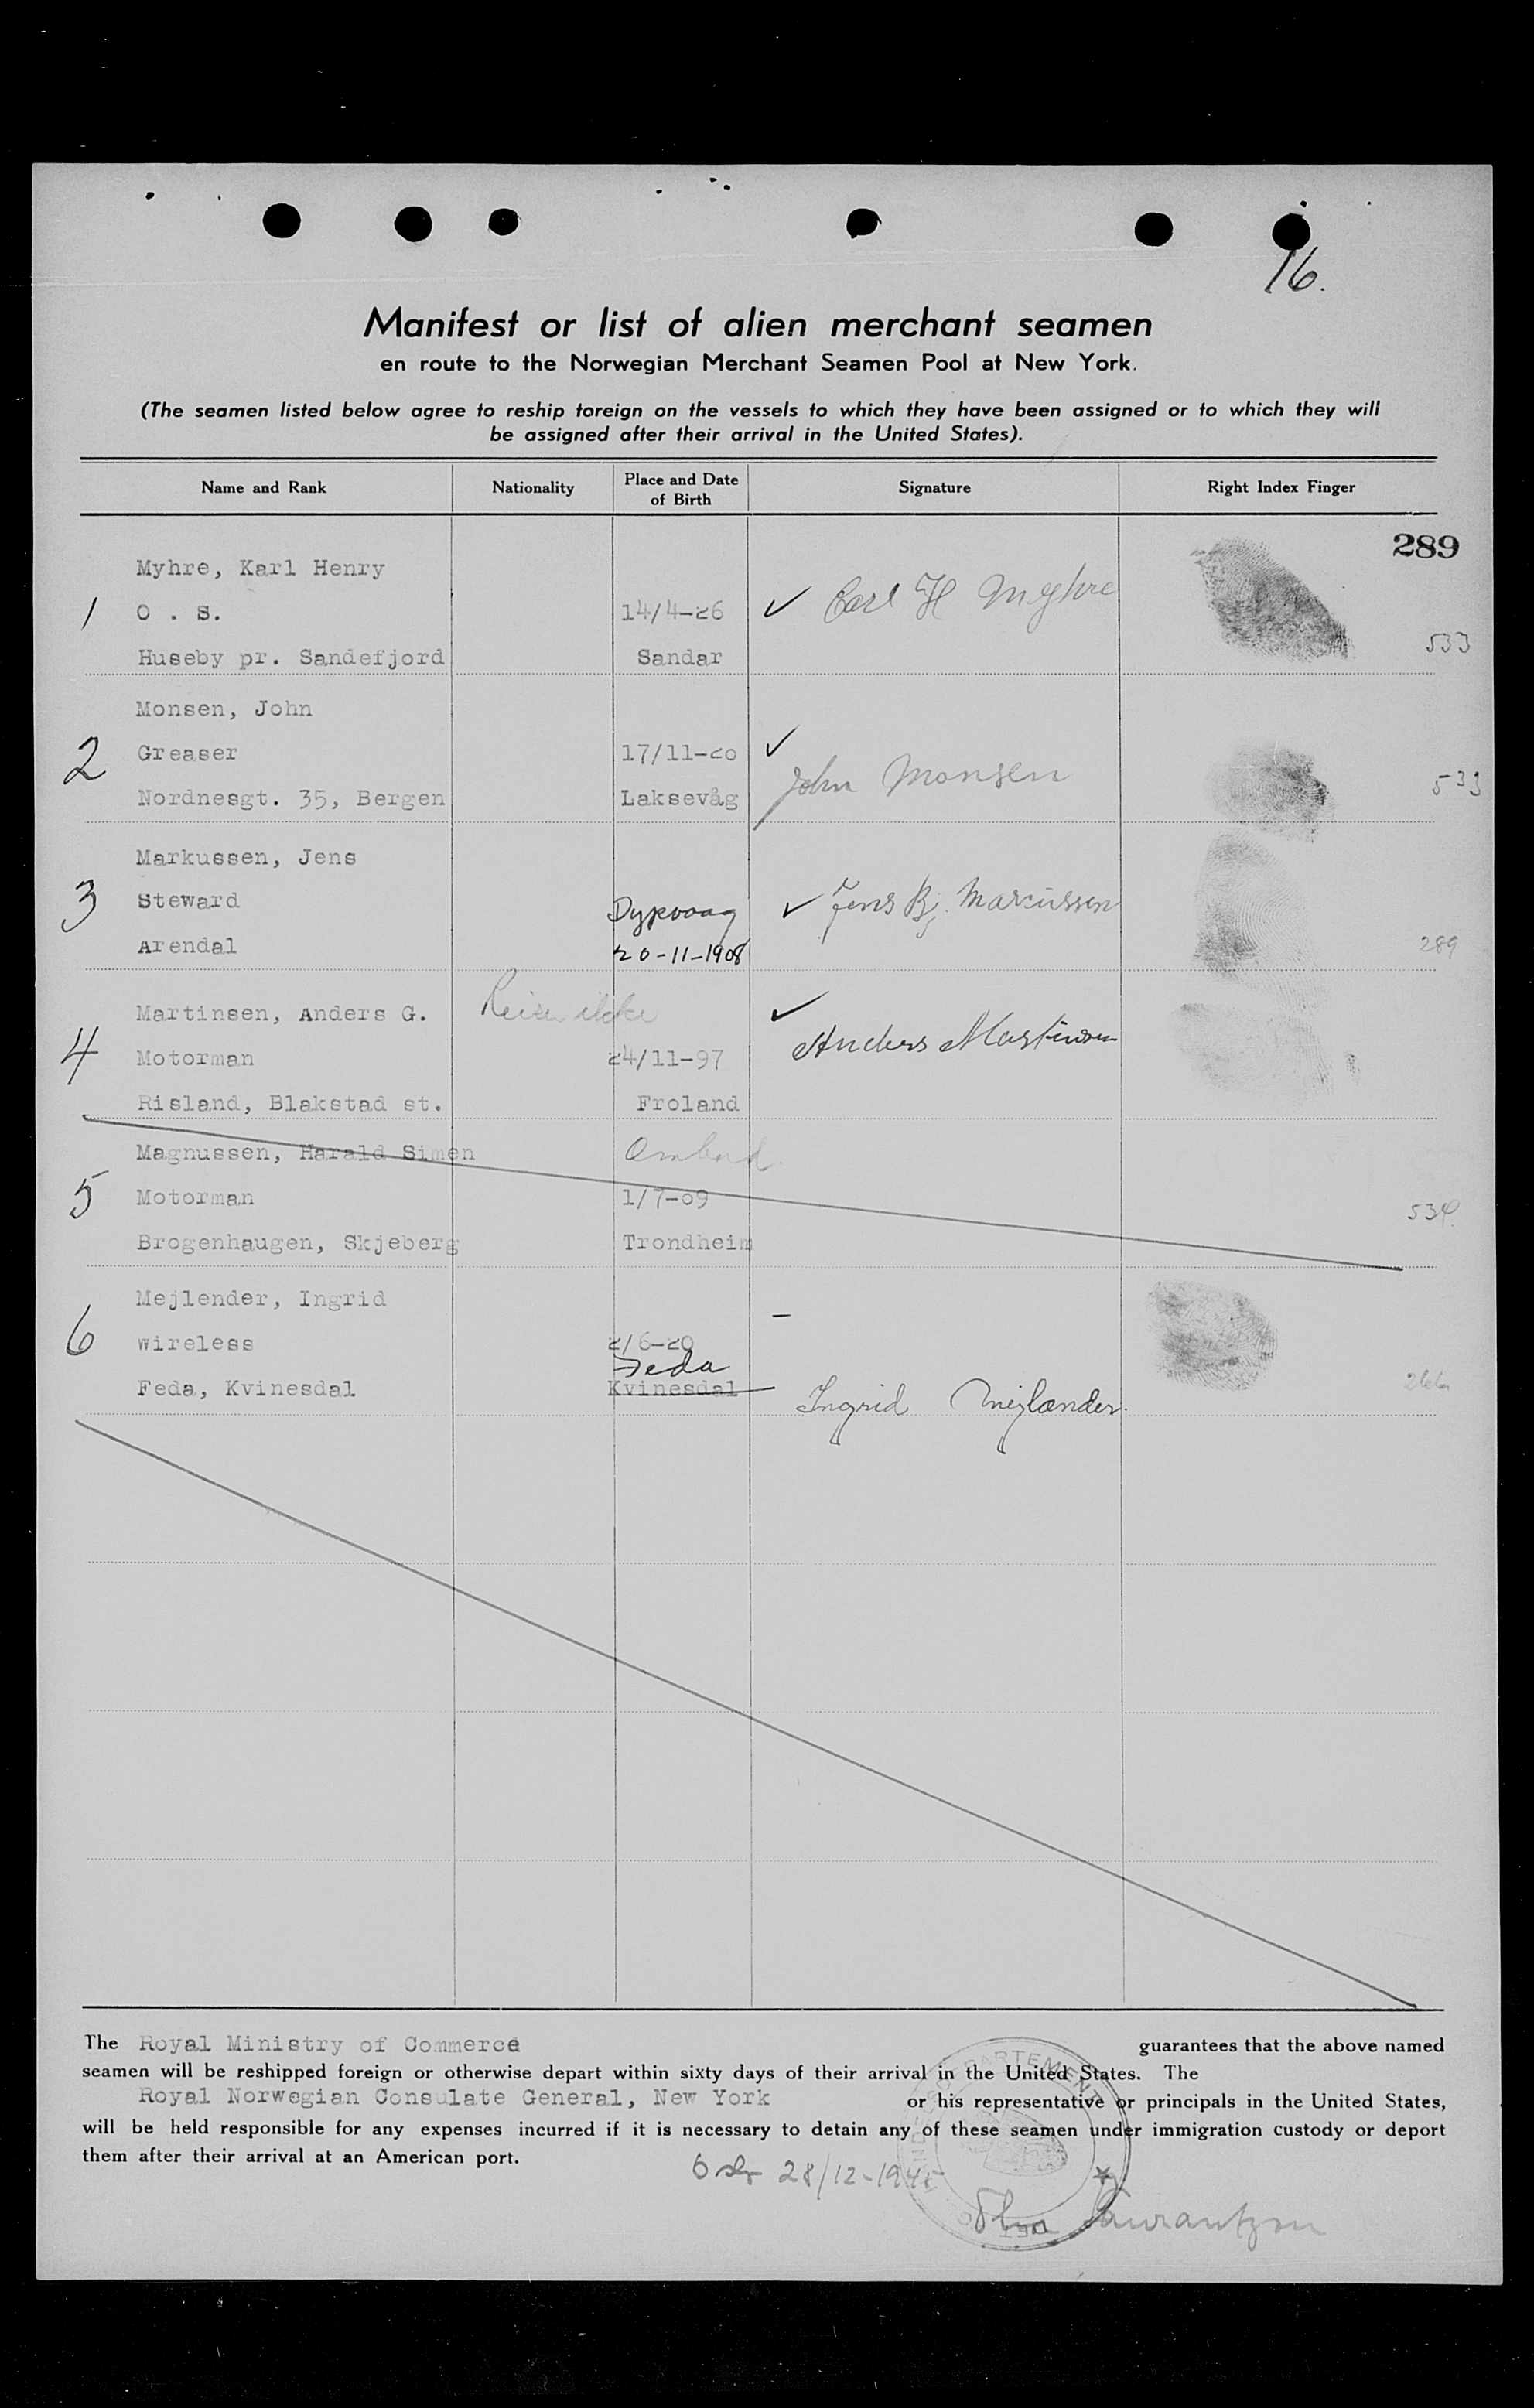 16.
Manifest or list of alien merchant seamen
en route to the Norwegian Merchant Seamen Pool at New York.
(The seamen listed below agree to reship foreign on the vessels to which they have been assigned or to which they will
be assigned after their arrival in the United States).
Name and Rank Nationality Place and Date of Birth Signature Right Index Finger
289
Myhre, Karl Henry
1 O . S. 14/4-26 ✓ Carl H Myhre
Huseby pr. Sandefjord Sandar 533
Monsen, John
2 Greaser 17/11-20 ✓ John Monsen
Nordnesgt. 35, Bergen Laksevåg 533
Markussen, Jens
3 Steward Dypvaag ✓ Jens Bj. Marcussen
Arendal 20-11-1908 289
Martinsen, Anders G. Reiser ikke ✓
4 Motorman 24/11-97 Anders Martinsen
Risland, Blakstad st. Froland
Magnussen, Harald Simen Ombord
5 Motorman 1/7-09 534
Brogenhaugen, Skjeberg Trondheim
Mejlender, Ingrid
6 Wireless 2/6-20
Feda
Feda, Kvinesdal Kvinesdal Ingrid Mejlænder 266
The Royal Ministry of Commerce guarantees that the above named
seamen will be reshipped foreign or otherwise depart within sixty days of their arrival in the United States. The
Royal Norwegian Consulate General, New York or his representative or principals in the United States,
will be held responsible for any expenses incurred if it is necessary to detain any of these seamen under immigration custody or deport
them after their arrival at an American port.
28/12-1945